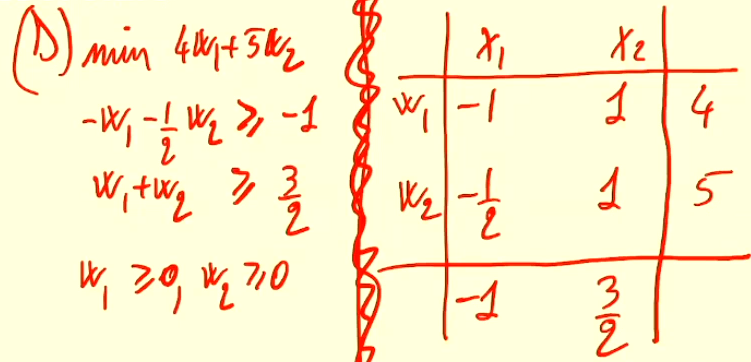 (D) min 4w₁+5w₂
-w₁-½w₂ ≥ -1
w₁+w₂ ≥ 3/2
w₁ ≥0, w₂ ≥0
x₁ x₂
w₁ -1 1 4
w₂ -½ 1 5
-1 3/2